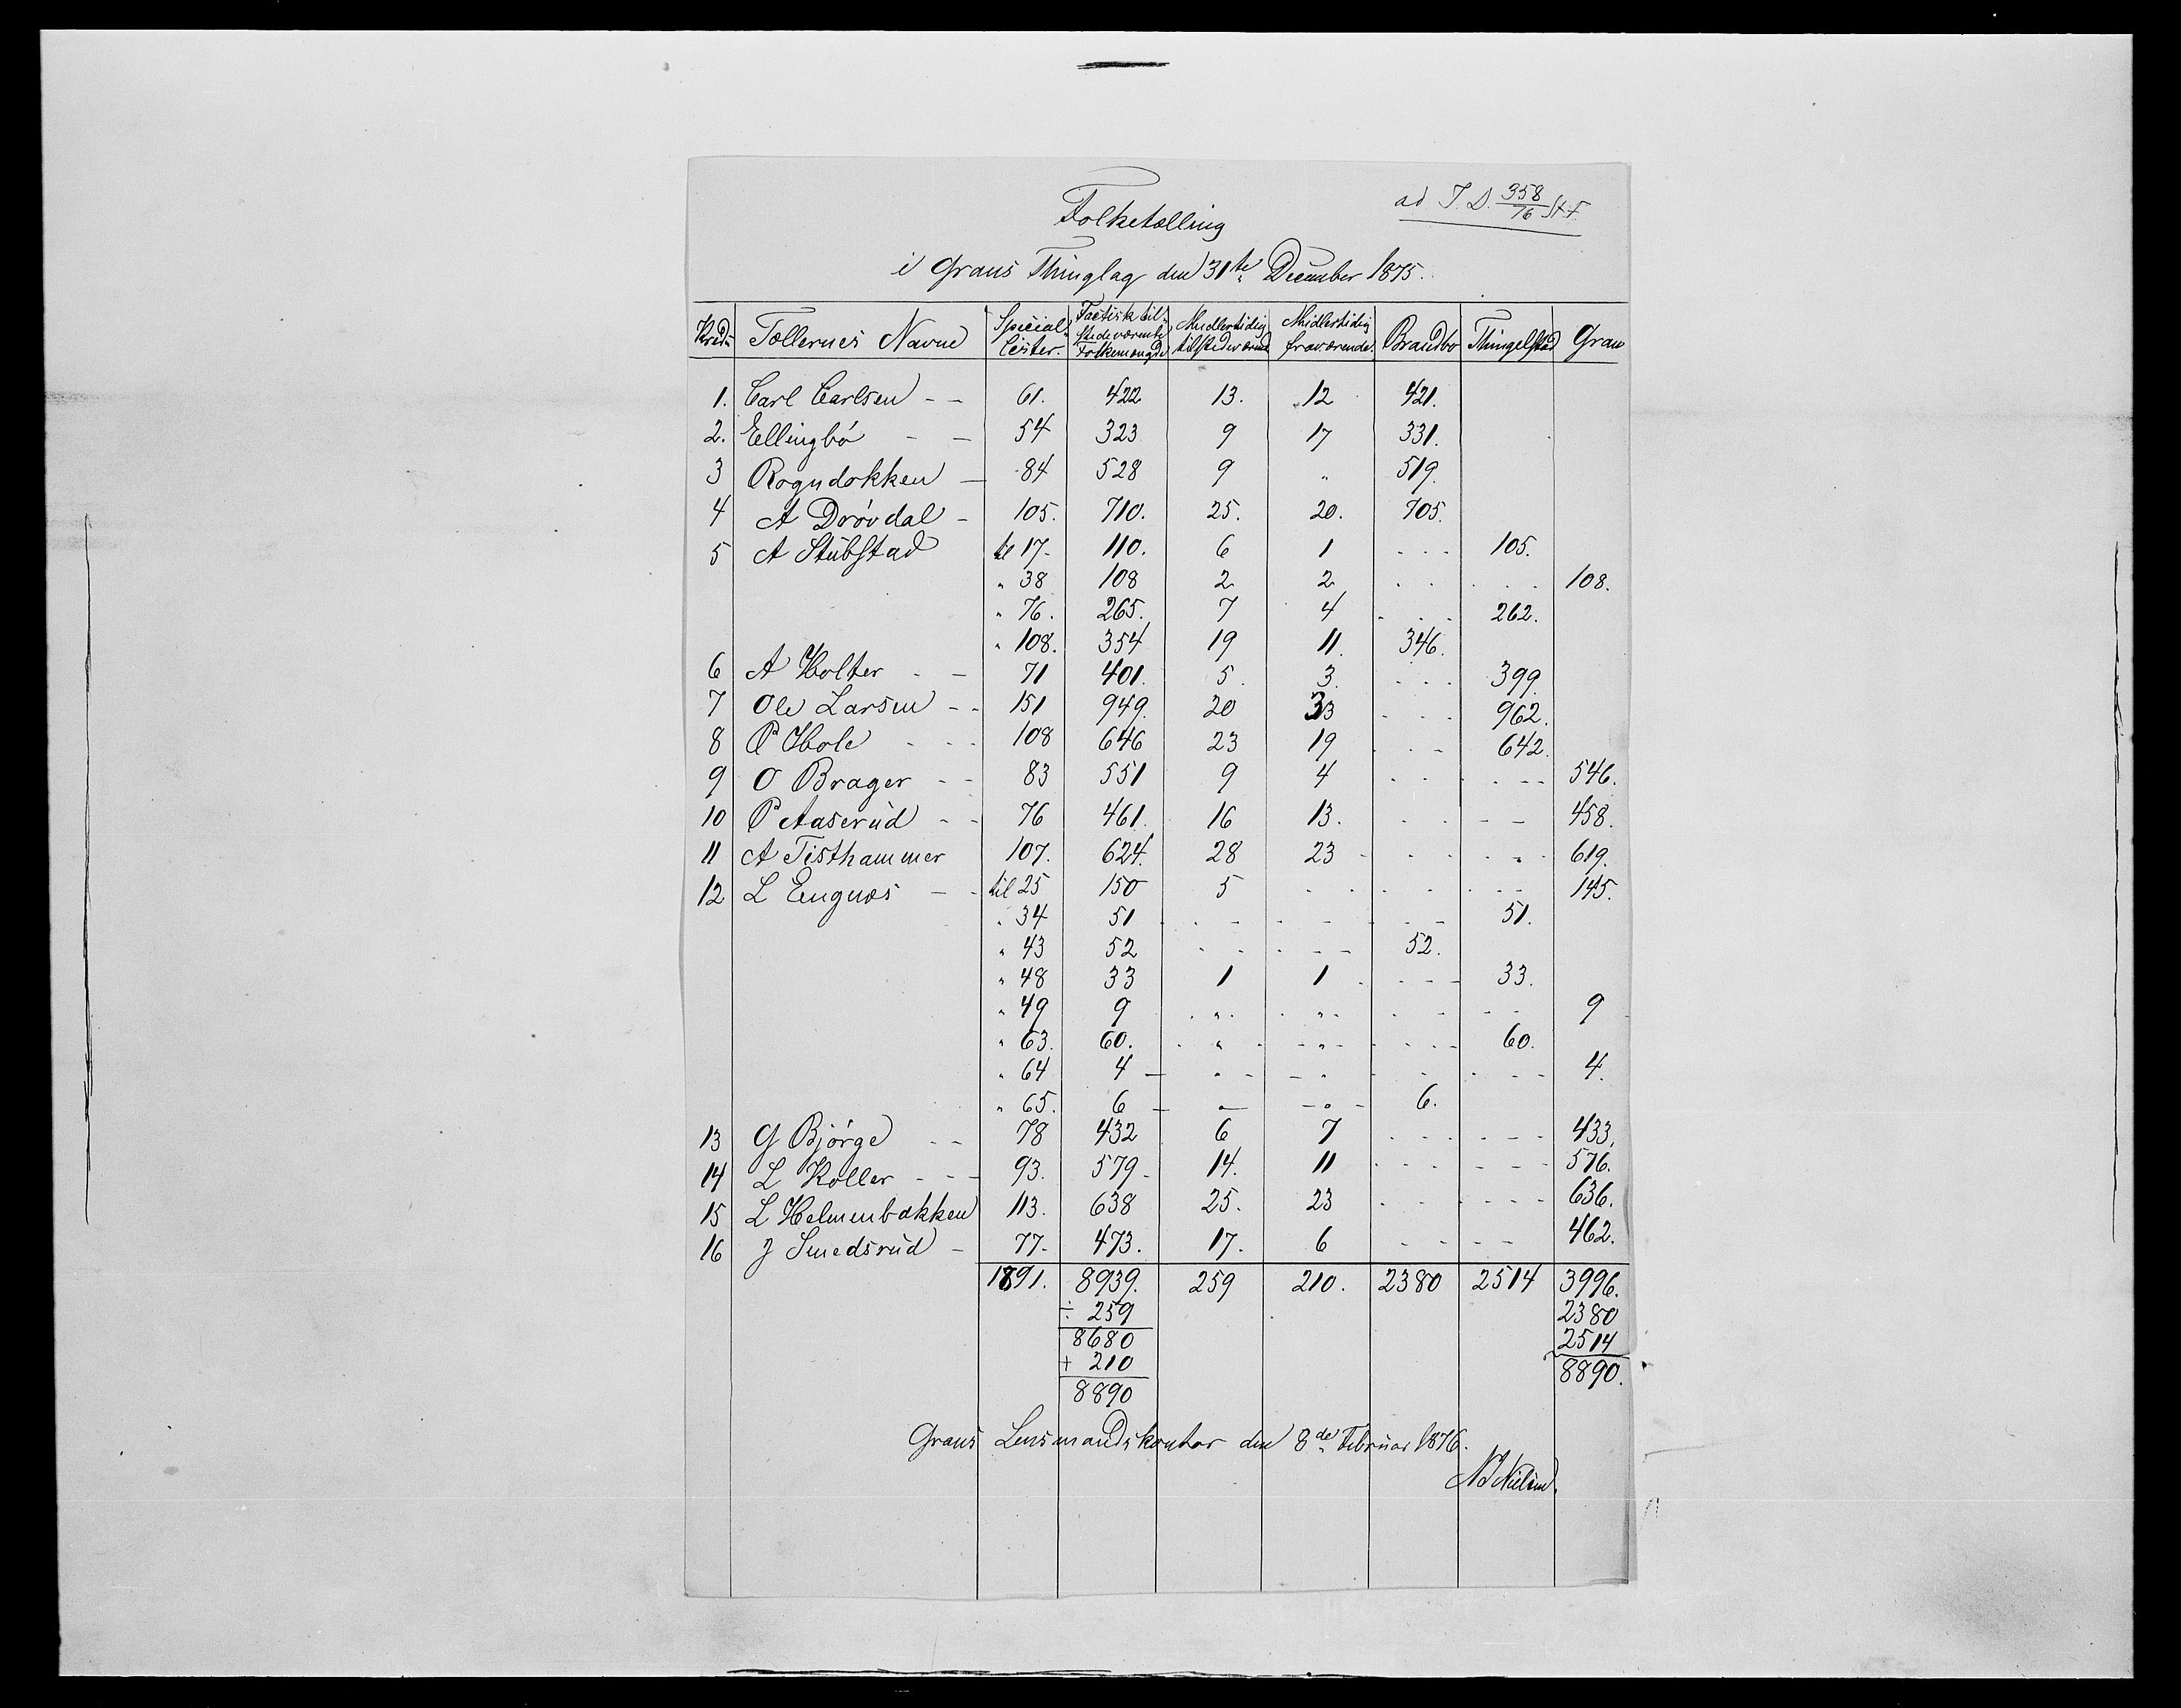 ad J.D. 358/76 Stf.
Folketælling
i Grans Thinglag den 31te December 1875.
Kreds Tællernes Navne Special Lister. Factisk tilstedeværende Folkemængde Midlertidig tilstedeværende Midlertidig fraværende. Brandbo Thingelstad Gran
1. Carl Carlsen - - 61. 422 13. 12 421.
2. Ellingbö - - 54 323 9 17 331.
3 Rogndokken - 84 528 9 " 519.
4 A Drövdal - 105. 710. 25. 20. 705.
5 A Stubstad til 17- 110. 6 1 - - - 105.
" 38 108 2 2 - - - - 108.
" 76. 265. 7 4 - - - 262.
" 108. 354 19 11. 346.
6 A Holter - - 71 401. 5. 3. - - - 399.
7 Ole Larsen - - 151 949. 20 33 - - - 962.
8 P Hole - - - 108 646 23 19 - - - 642.
9 O Brager - - 83 551 9 4 - - - - - 546.
10 P Aaserud - - 76 461. 16 13. - - - - 458.
11 A Tisthammer 107. 624. 28 23 - - - - " - 619.
12 L Engnæs - - til 25 150 5 - - - - - - - 145.
" 34 51 - - - - - - 51.
" 43 52 - - - - - 52.
" 48 33 1 1 - - - - 33.
" 49 9 - " - - " - - - - - 9
" 63. 60. - " - - " - - - - - 60.
" 64 4 - " - - " - - - - - 4.
" 65. 6 - " - " - 6.
13 G Bjørge - - 78 432 6 7 - - - - - - 433.
14 L Koller - - - 93. 579- 14. 11 - - - - - - 576.
15 L Helmenbakken 113. 638 25. 23 - - - - - - 636.
16 J Smedsrud - 77- 473. 17. 6 - - - - 462.
1891. 8939. 259 210. 2380 2514 3996.
÷ 259 2380
8680 2514
+ 210 8890.
8890
Grans Lensmandskontor den 8de Februar 1876.
N Nielsen.